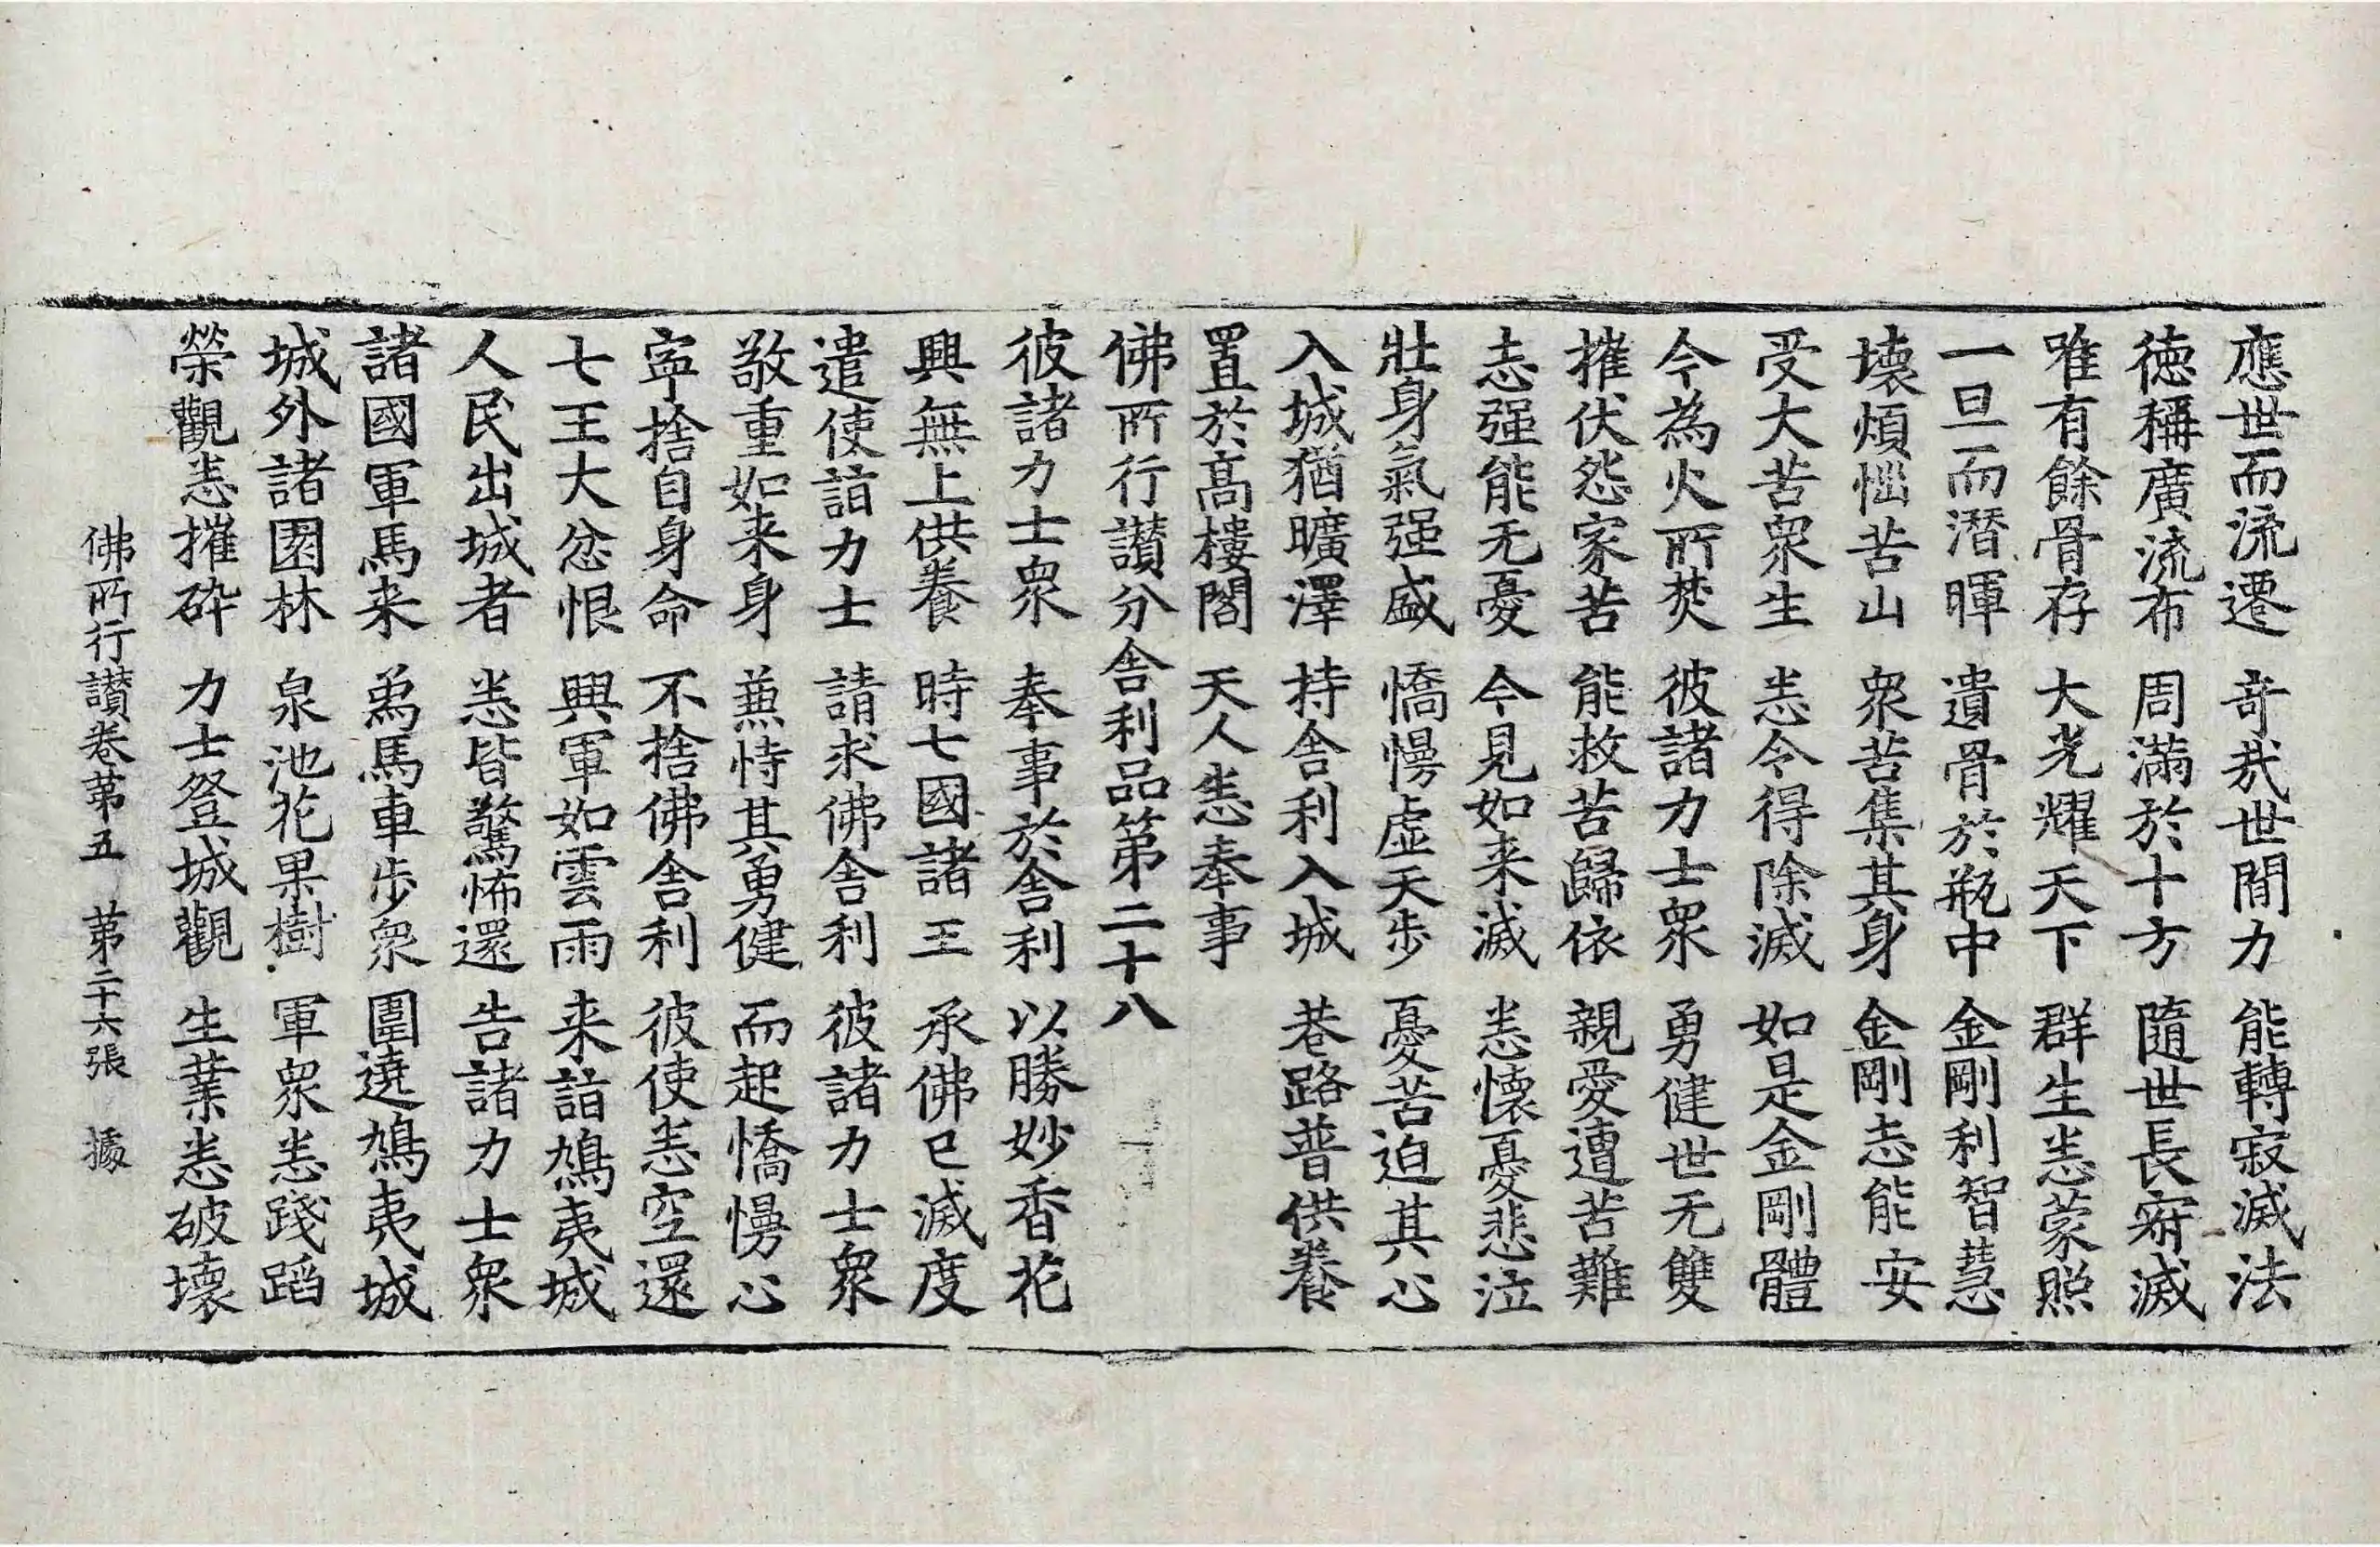 應世而流遷　竒㢤世間力　能轉寂滅法
徳稱廣流布　周滿於十方　隨世長寂滅
唯有餘骨存　大光耀天下　群生悉蒙照
一旦而潛暉　遺骨於瓶中　金剛利智慧
壞煩惱苦山　衆苦集其身　金剛志能安
受大苦衆生　悉令得除滅　如是金剛體
今為火所焚　彼諸力士衆　勇健世无雙
摧伏怨家苦　能救苦歸依　親愛遭苦難
志强能无憂　今見如来滅　悉懷憂悲泣
壯身氣强盛　憍慢虛天步　憂苦迫其心
入城猶曠澤　持舍利入城　巷路普供養
置於髙樓閣　天人悉奉事
佛所行讃分舍利品第二十八
彼諸力士衆　奉事於舍利　以勝妙香花
興無上供養　時七國諸王　承佛已滅度
遣使詣力士　請求佛舍利　彼諸力士衆
敬重如来身　兼恃其勇健　而起憍慢心
寜捨自身命　不捨佛舍利　彼使悉空還
七王大忿恨　興軍如雲雨　来詣鳩夷城
人民出城者　悉皆驚怖還　告諸力士衆
諸國軍馬来　象馬車步衆　圍遶鳩夷城
城外諸園林　泉池花果樹　軍衆悉踐蹈
榮觀悉摧碎　力士登城觀　生業悉破壞
佛所行讃卷第五　第二十六張　據